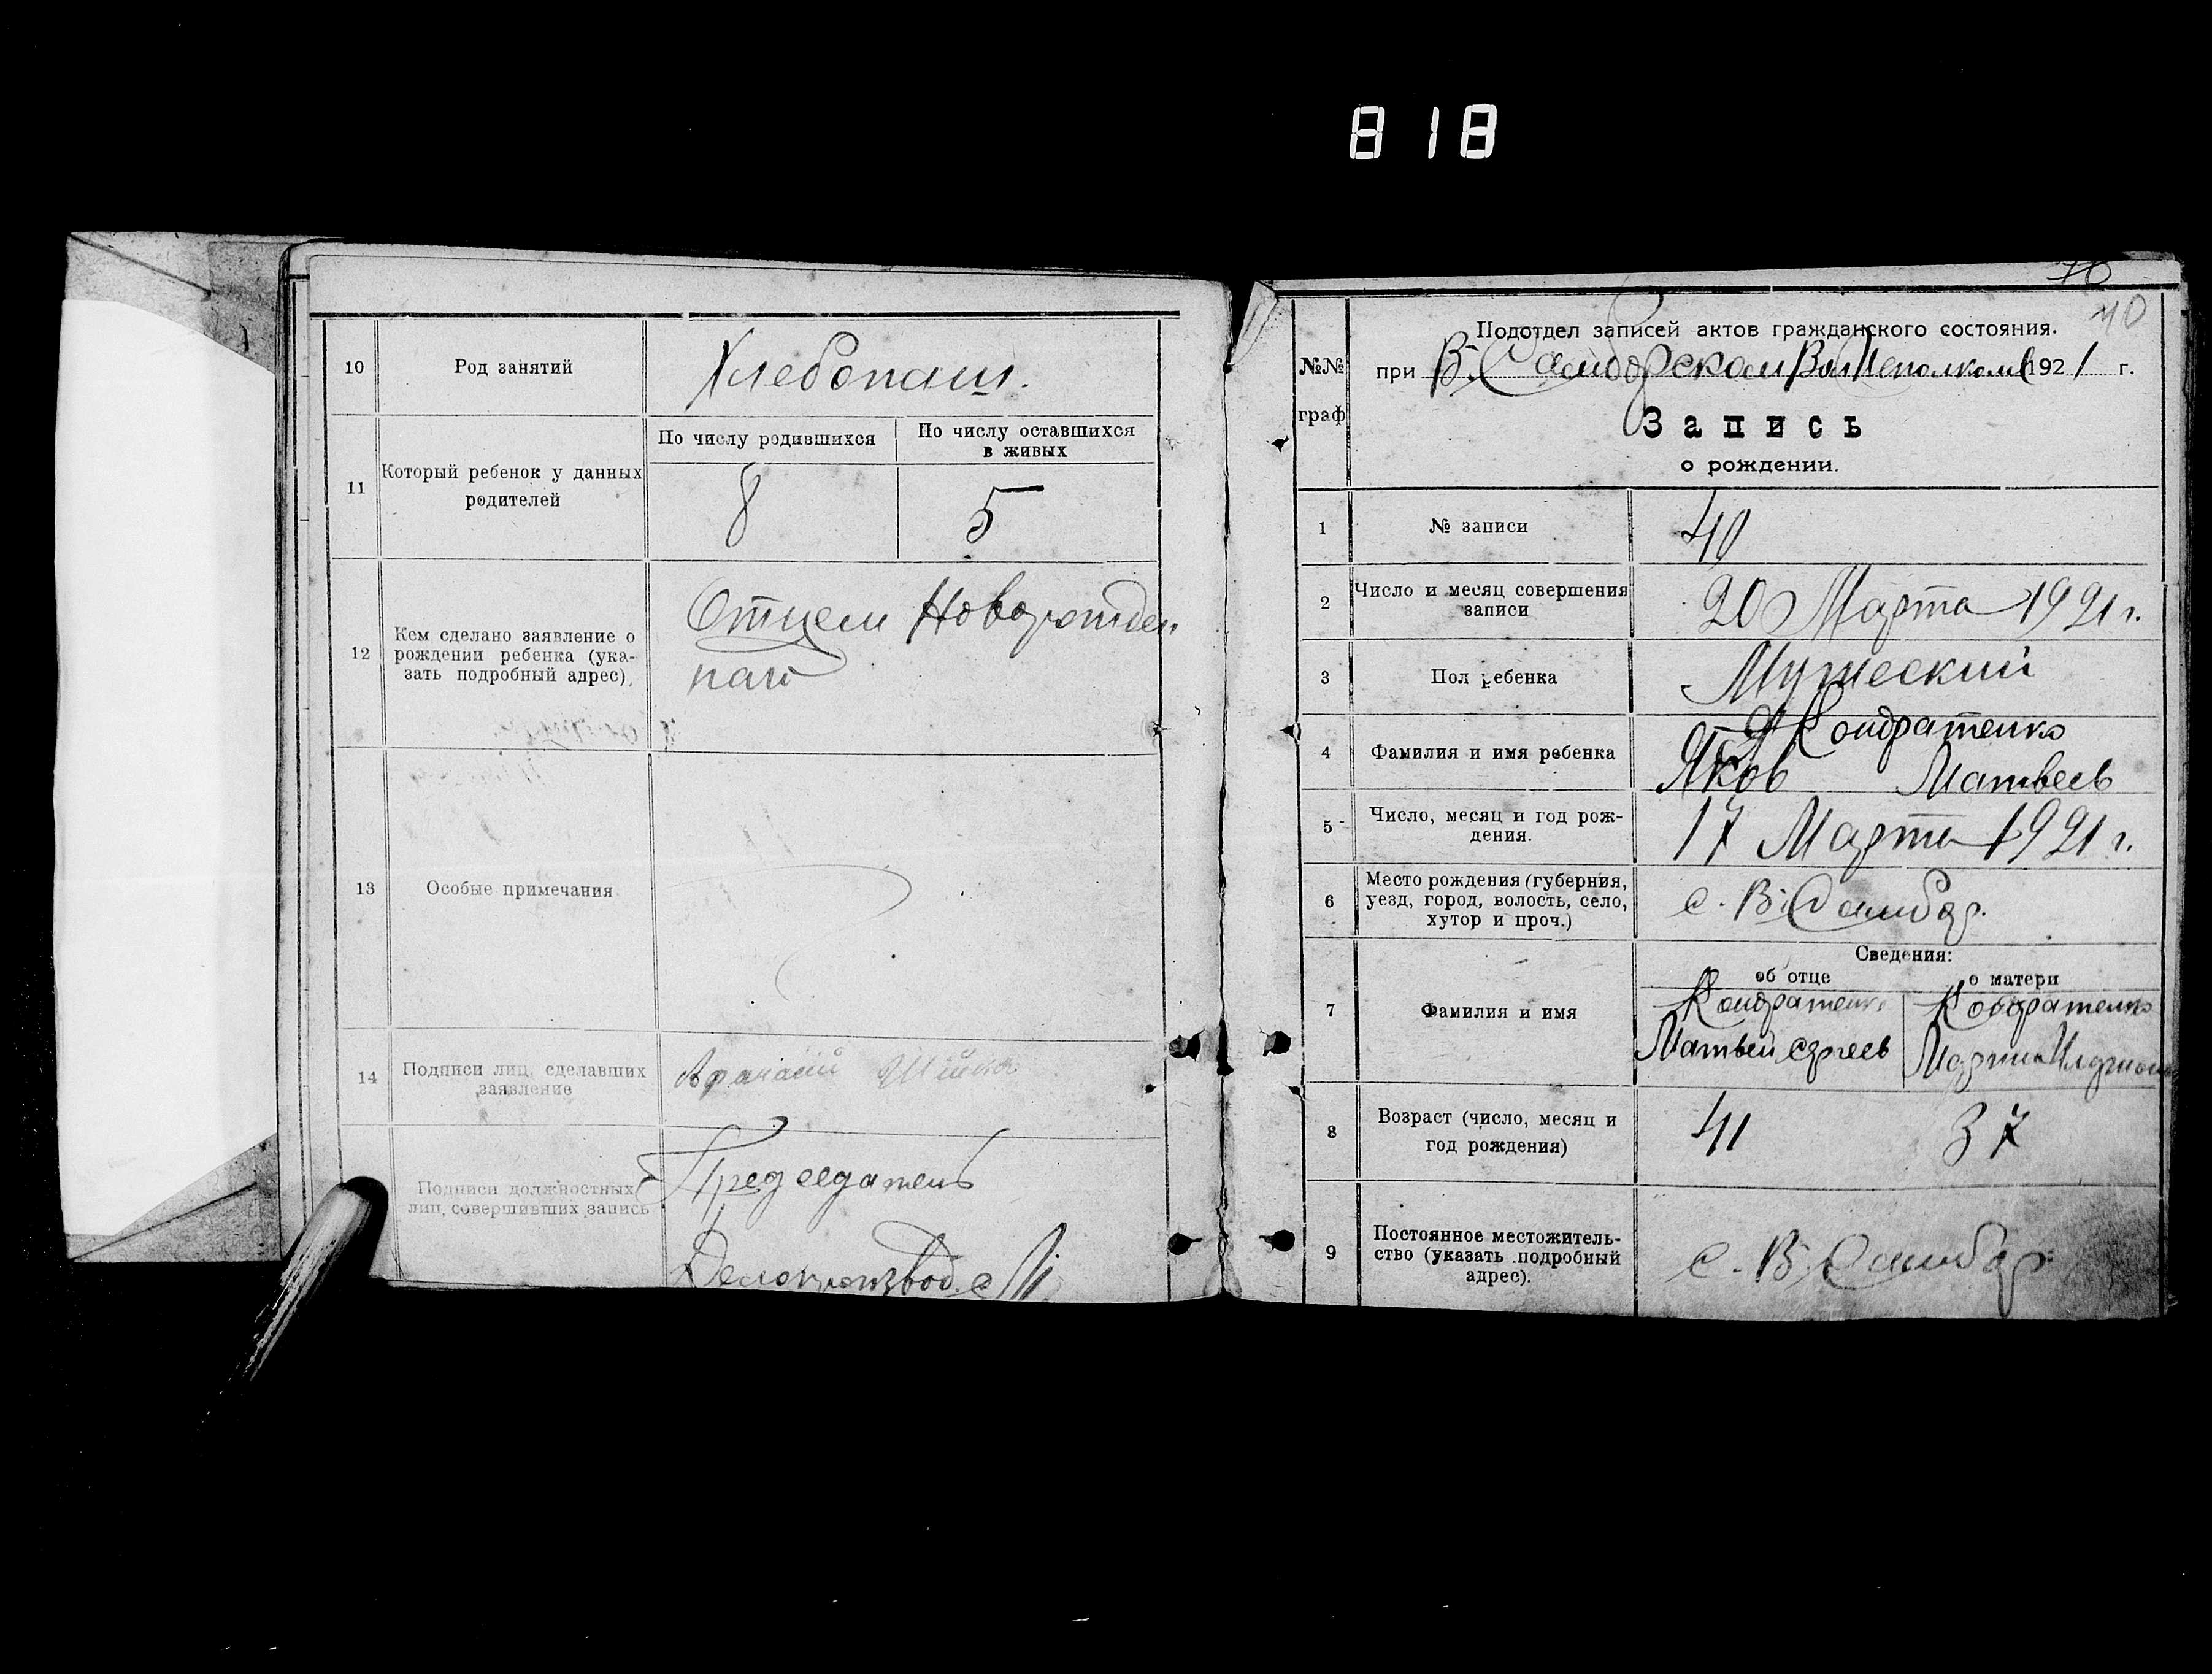 818
10
Род занятий
Хлебопаш.
11
Который ребенок у данных
родителей
По числу родившихся
По числу оставшихся
в живых
8
5
12
Кем сделано заявление о
рождении ребенка (ука-
зать подробный адрес)
Отцем Новорожден
наго
13
Особые примечания
14
Подписи лиц, сделавших
заявление
Афанасий
Подписи должностных
лиц, совершивших запись
Председатель
Делопроизвод.
70
40
№№
граф
Подотдел записей актов гражданского состояния.
при В. Самборском ВолИсполкоме 1921 г.
Запись
о рождении.
1
№ записи
40
2
Число и месяц совершения
записи
20 Марта 1921 г.
3
Пол ребенка
Мужеский
4
Фамилия и имя ребенка
Кондратенко
Яков Матвеев
5
Число, месяц и год рож-
дения.
17 Марта 1921 г.
6
Место рождения (губерния,
уезд, город, волость, село,
хутор и проч.)
с. В. Самбор.
Сведения:
об отце
о матери
7
Фамилия и имя
Кондратенко
Матвей Сергеев
Кондратенко
8
Возраст (число, месяц и
год рождения)
41
37
9
Постоянное местожитель-
ство (указать подробный
адрес).
с. В. Самбор